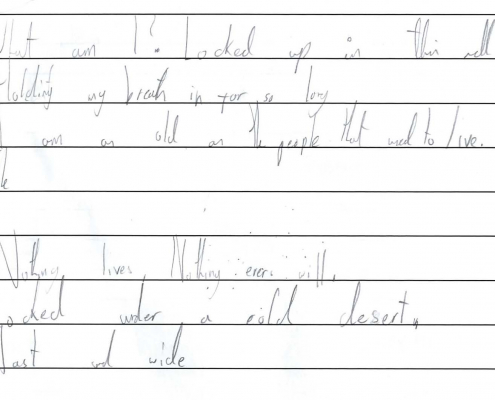 What am I? Locked up in this cell
Holding my breath in for so long
I am as old as the people that used to live.
Nothing lives, Nothing ever will,
Locked under a cold desert,
Vast and wide